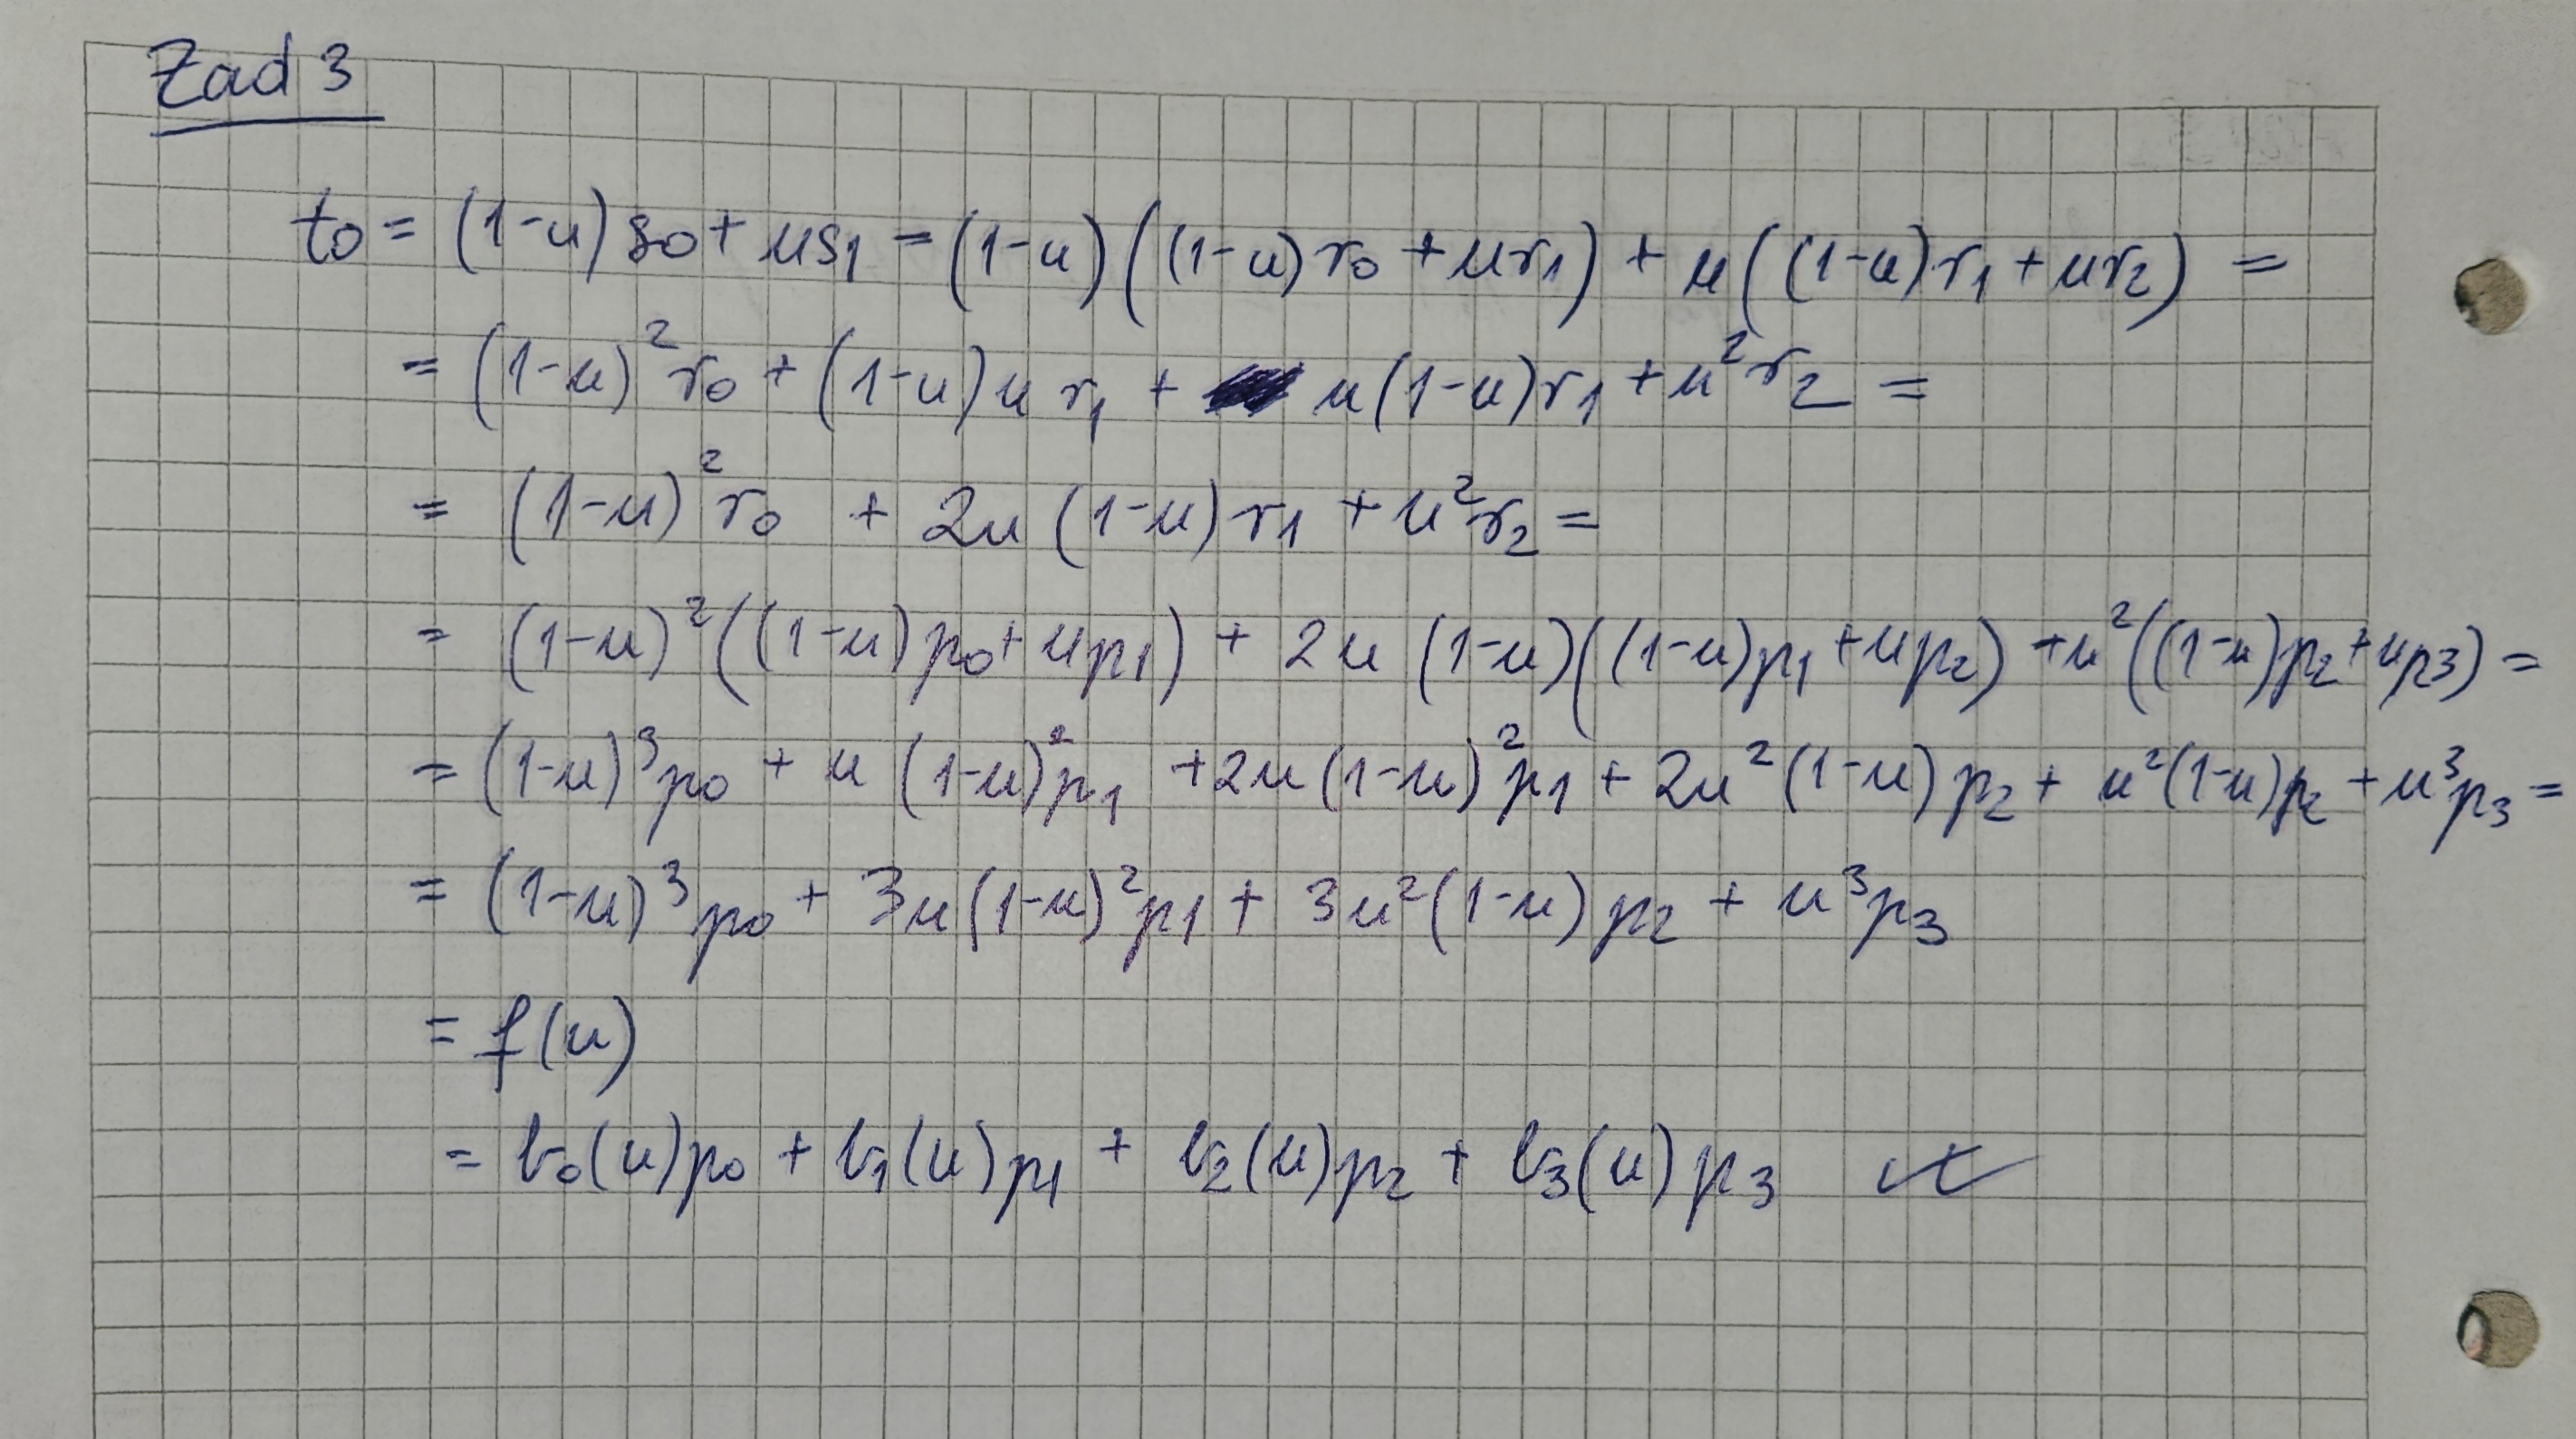 Zad 3
t0 = (1-u) s0 + us1 = (1-u) ((1-u) r0 + ur1) + u ((1-u) r1 + ur2) =
= (1-u)² r0 + (1-u) u r1 + u (1-u) r1 + u² r2 =
= (1-u)² r0 + 2u (1-u) r1 + u² r2 =
= (1-u)² ((1-u) p0 + up1) + 2u (1-u) ((1-u) p1 + up2) + u² ((1-u) p2 + up3) =
= (1-u)³ p0 + u (1-u)² p1 + 2u (1-u)² p1 + 2u² (1-u) p2 + u² (1-u) p2 + u³ p3 =
= (1-u)³ p0 + 3u (1-u)² p1 + 3u² (1-u) p2 + u³ p3
= f(u)
= b0(u) p0 + b1(u) p1 + b2(u) p2 + b3(u) p3